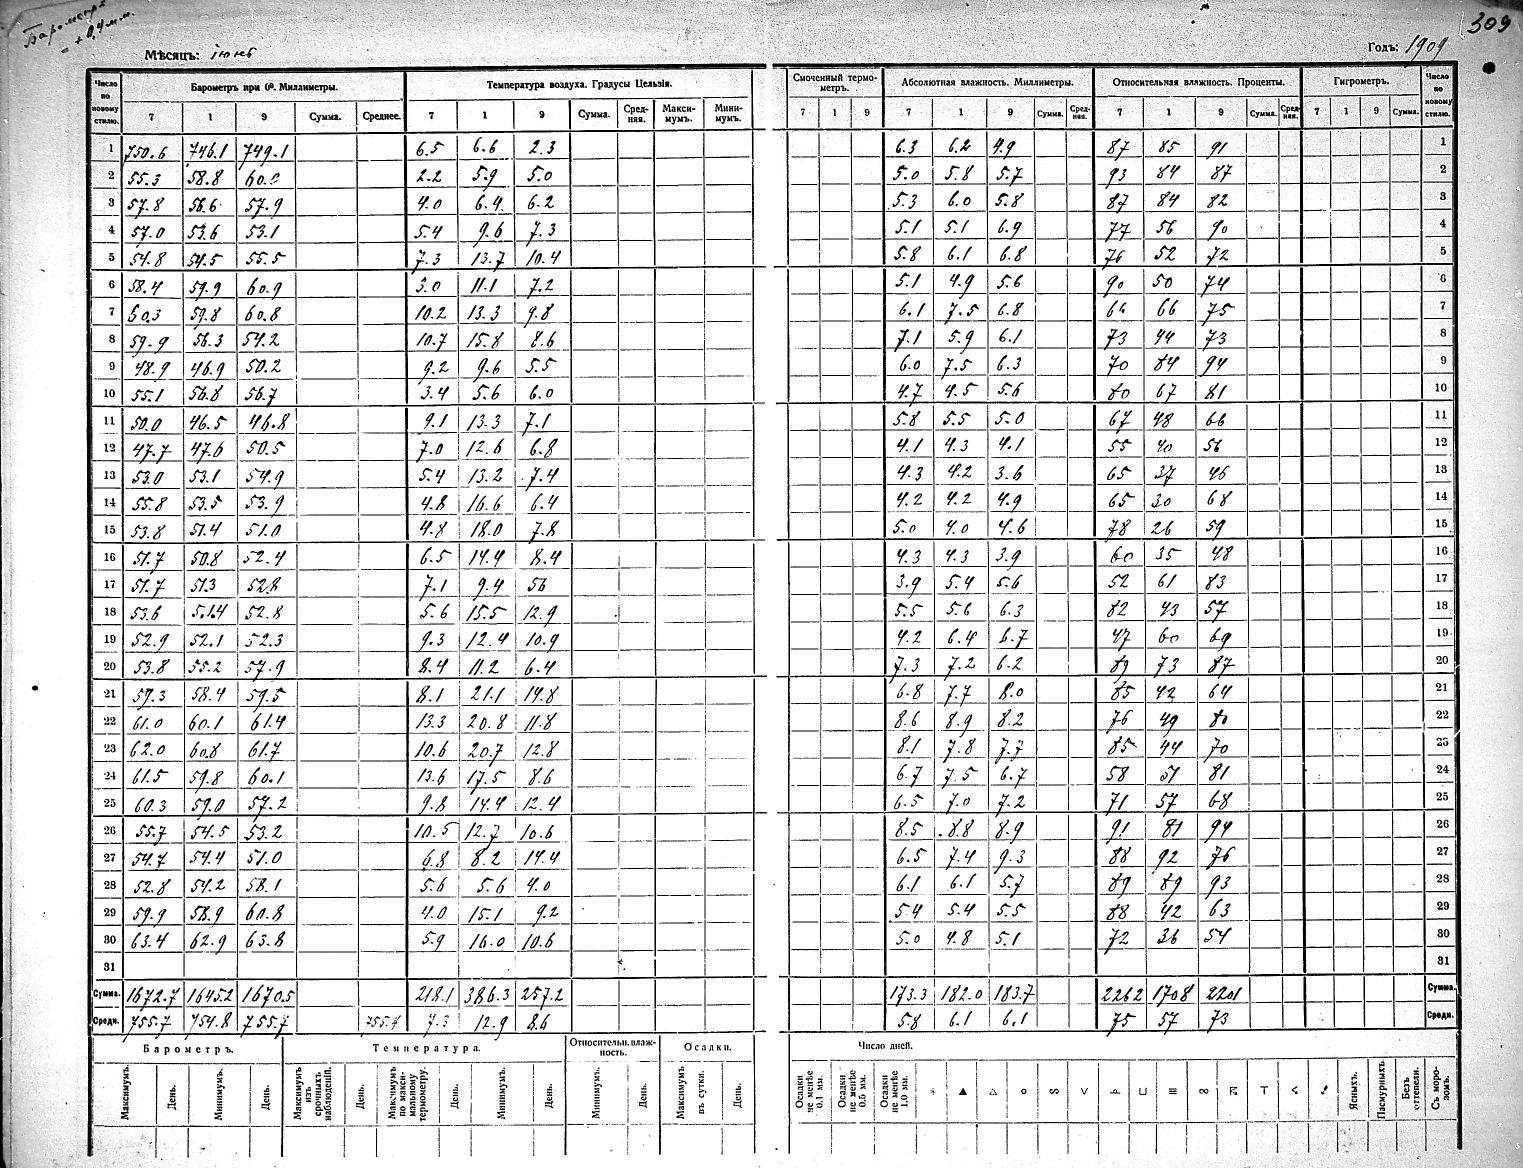 Барометр
= +0,4 м.м.
309
Мѣсяцъ: іюнь Годъ: 1909
Число по новому стилю. Барометръ при 0⁰. Миллиметры. Температура воздуха. Градусы Цельзія. Смоченный термометръ. Абсолютная влажность. Миллиметры. Относительная влажность. Проценты. Гигрометръ. Число по новому стилю.
7 1 9 Сумма. Среднее. 7 1 9 Сумма. Средняя. Максимумъ. Минимумъ. 7 1 9 7 1 9 Сумма. Средняя. 7 1 9 Сумма. Средняя. 7 1 9 Сумма.
1 750.6 746.1 749.1 6.5 6.6 2.3 6.3 6.2 4.9 87 85 91 1
2 55.3 58.8 60.0 2.2 5.9 5.0 5.0 5.8 5.7 93 84 87 2
3 57.8 56.6 57.9 4.0 6.4 6.2 5.3 6.0 5.8 87 84 82 3
4 57.0 53.6 53.1 5.4 9.6 7.3 5.1 5.1 6.9 77 56 90 4
5 54.8 54.5 55.5 7.3 13.7 10.4 5.8 6.1 6.8 76 52 72 5
6 58.4 59.9 60.9 3.0 11.1 7.2 5.1 4.9 5.6 90 50 74 6
7 60.3 59.8 60.8 10.2 13.3 9.8 6.1 7.5 6.8 66 66 75 7
8 59.9 56.3 54.2 10.7 15.8 8.6 7.1 5.9 6.1 73 44 73 8
9 48.9 46.9 50.2 9.2 9.6 5.5 6.0 7.5 6.3 70 84 94 9
10 55.1 56.8 56.7 3.4 5.6 6.0 4.7 4.5 5.6 80 67 81 10
11 50.0 46.5 46.8 9.1 13.3 7.1 5.8 5.5 5.0 67 48 66 11
12 47.7 47.6 50.5 7.0 12.6 6.8 4.1 4.3 4.1 55 40 56 12
13 53.0 53.1 54.9 5.4 13.2 7.4 4.3 4.2 3.6 65 37 46 13
14 55.8 53.5 53.9 4.8 16.6 6.4 4.2 4.2 4.9 65 30 68 14
15 53.8 51.4 51.0 4.8 18.0 7.8 5.0 4.0 4.6 78 26 59 15
16 51.7 50.8 52.4 6.5 14.4 8.4 4.3 4.3 3.9 60 35 48 16
17 51.7 51.3 52.8 7.1 9.4 56 3.9 5.4 5.6 52 61 83 17
18 53.6 51.4 52.8 5.6 15.5 12.9 5.5 5.6 6.3 82 43 57 18
19 52.9 52.1 52.3 9.3 12.4 10.9 4.2 6.4 6.7 47 60 69 19
20 53.8 55.2 57.9 8.4 11.2 6.4 7.3 7.2 6.2 89 73 87 20
21 59.3 58.4 59.5 8.1 21.1 14.8 6.8 7.7 8.0 85 42 64 21
22 61.0 60.1 61.4 13.3 20.8 11.8 8.6 8.9 8.2 76 49 80 22
23 62.0 60.8 61.7 10.6 20.7 12.8 8.1 7.8 7.7 85 44 70 23
24 61.5 59.8 60.1 13.6 17.5 8.6 6.7 7.5 6.7 58 51 81 24
25 60.3 59.0 57.2 9.8 14.4 12.4 6.5 7.0 7.2 71 57 68 25
26 55.7 54.5 53.2 10.5 12.7 10.6 8.5 8.8 8.9 91 81 94 26
27 54.7 54.4 51.0 6.8 8.2 14.4 6.5 7.4 9.3 88 92 76 27
28 52.8 54.2 58.1 5.6 5.6 4.0 6.1 6.1 5.7 89 89 93 28
29 59.9 58.9 60.8 4.0 15.1 9.2 5.4 5.4 5.5 88 42 63 29
30 63.4 62.9 63.8 5.9 16.0 10.6 5.0 4.8 5.1 72 36 54 30
31 31
Сумма. 1672.7 1645.2 1670.5 218.1 386.3 257.2 173.3 182.0 183.7 2262 1708 2201 Сумма.
Средн. 755.7 754.8 755.7 755.4 7.3 12.9 8.6 5.8 6.1 6.1 75 57 73 Средн.
Барометръ. Температура. Относительн. влажность. Осадки. Число дней.
Максимумъ. День. Минимумъ. День. Максимумъ изъ срочныхъ наблюденій. День. Максимумъ по максимальному термометру. День. Минимумъ. День. Минимумъ. День. Максимумъ въ сутки. День. Осадки не менѣе 0.1 мм. Осадки не менѣе 0.5 мм. Осадки не менѣе 1.0 мм. Ясныхъ. Пасмурныхъ Безъ оттепели. Съ морозомъ.